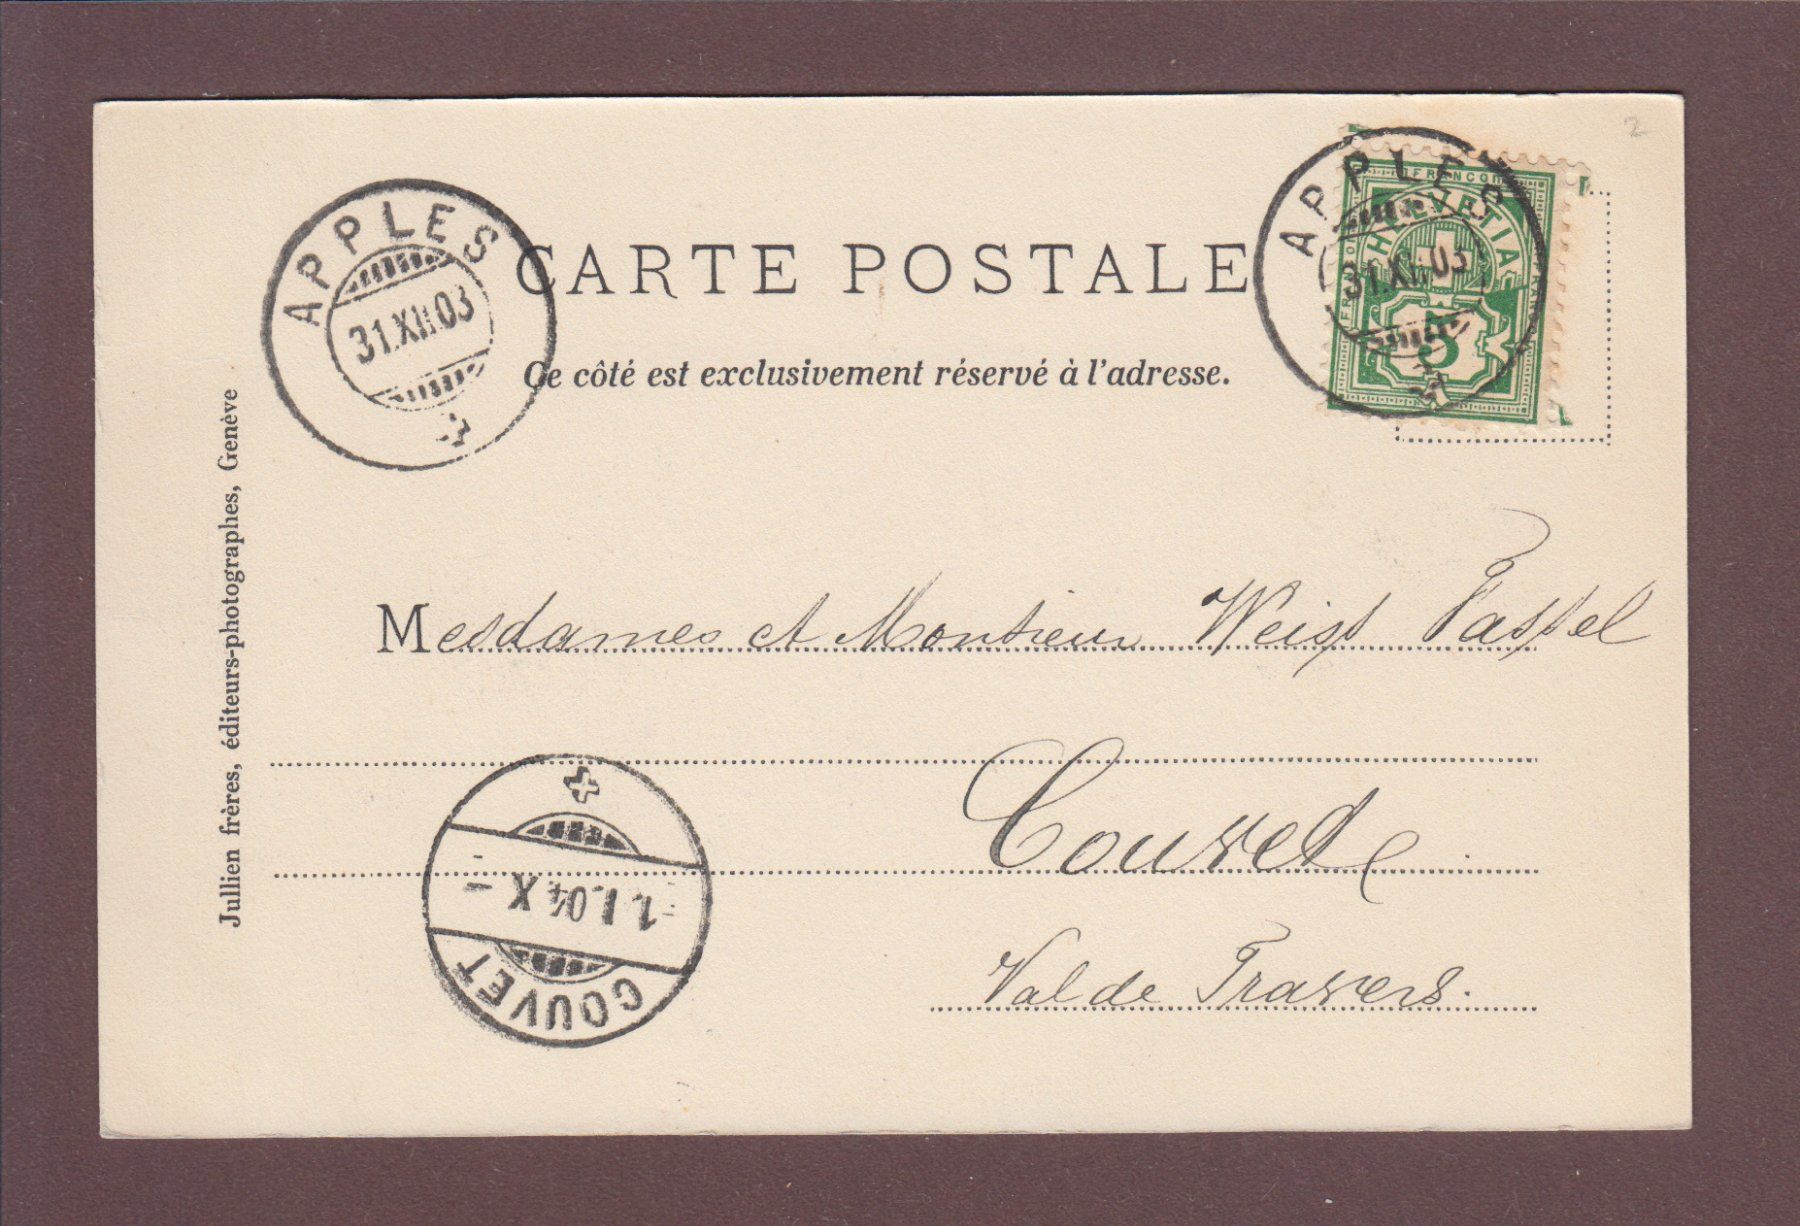 2
APPLES
31.XII.03
CARTE POSTALE
APPLES
31.XII.03
FRANCO
HELVETIA
5
Ce côté est exclusivement réservé à l'adresse.
Jullien frères, éditeurs-photographes, Genève
Mesdames et Monsieur Weiss
Couvet
Val de Travers.
1.I.04 X -
COUVET